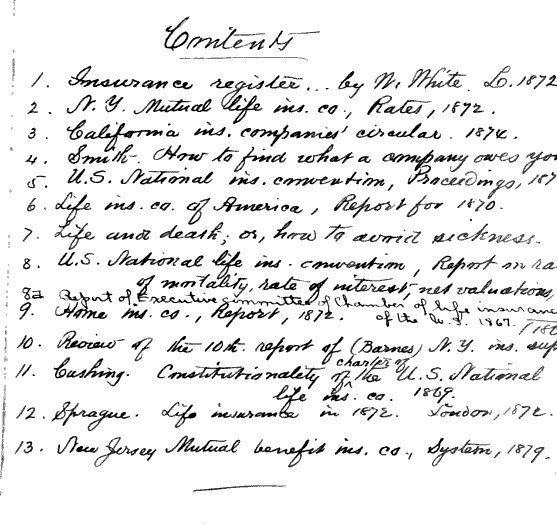 Contents
1. Insurance register... by W. White. L. 1872
2. N.Y. Mutual life ins. co., Rates, 1872.
3. California ins. companies' circular. 1874.
4. Smith. How to find what a company owes you
5. U.S. National ins. convention, Proceedings, 187
6. Life ins. co. of America, Report for 1870.
7. Life and death; or, how to avoid sickness.
8. U.S. National life ins. convention, Report on ra
of mortality, rate of interest, net valuations,
8a Report of Executive Committee of Chamber of life insurance
of the U.S. 1867.
9. Home ins. co., Report, 1872.
10. Review of the 10th. report of (Barnes) N.Y. ins. sup
11. Cushing. Constitutionality of charter of the U.S. National
life ins. co. 1869.
12. Sprague. Life insurance in 1872. London, 1872.
13. New Jersey Mutual benefit ins. co., System, 1879.